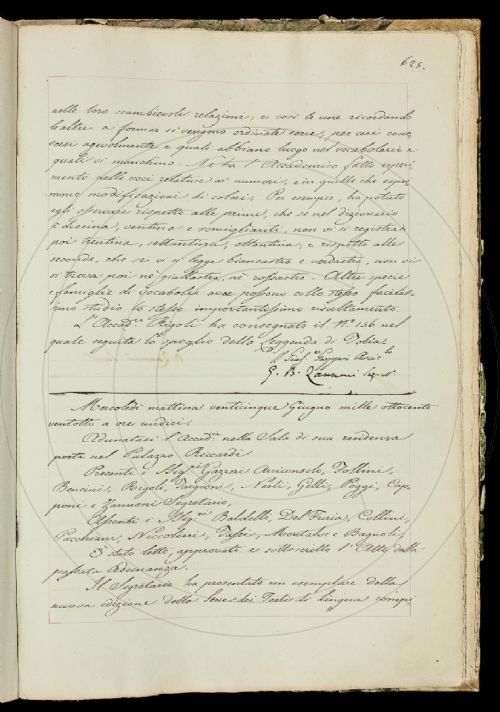 625.
nelle loro scambievoli relazione, e così le une ricordando
le altre a formar si vengono ordinate serie, per cui cono
scesi agevolmente e quali abbiano luogo nel vocabolario e
quali vi manchino. Ne ha l'Accademico fatto speri
mento nelle voci relative ai numeri, e in quelle che espri
mono modificazioni di colori. Per esempio, ha potuto
egli osservare rispetto alle prime, che se nel dizionario
è diecina, ventina e somiglianti, non vi si registra
poi trentina, settantina, ottantina, e rispetto alle
seconde, che se vi si legge biancastro e verdastro, non vi
si trova poi nè giallastro, nè rossastro. Altre specie
e famiglie di vocaboli ove possono collo stesso facilis
simo studio lo stesso importantissimo risultamento.
L'Accad.co Rigoli ha consegnato il N.o 136 nel
quale seguita lo spoglio della leggenda di Tobia.
G. B. Zannoni Seg.o
Mercoledì mattina venticinque Giugno mille ottocento
ventotto a ore undici.
Adunatasi l'Accad.a nella Sala di sua residenza
posta nel Palazzo Riccardi
Presenti i Sig.ri Gazzeri Arciconsolo, Follini,
Bencini, Rigoli, Targioni, Nesti, Gelli, Poggi, Cap
poni e Zannoni Segretario,
Assenti i Sig.ri Baldelli, Del Furia, Collini,
Pacchiani, Niccolini, Tassi, Montalvi e Bagnoli,
È stato letto, approvato e sottoscritto l'Atto della
passata Adunanza.
Il Segretario ha presentato un esemplare della
nuova edizione della Serie dei Testi di lingua